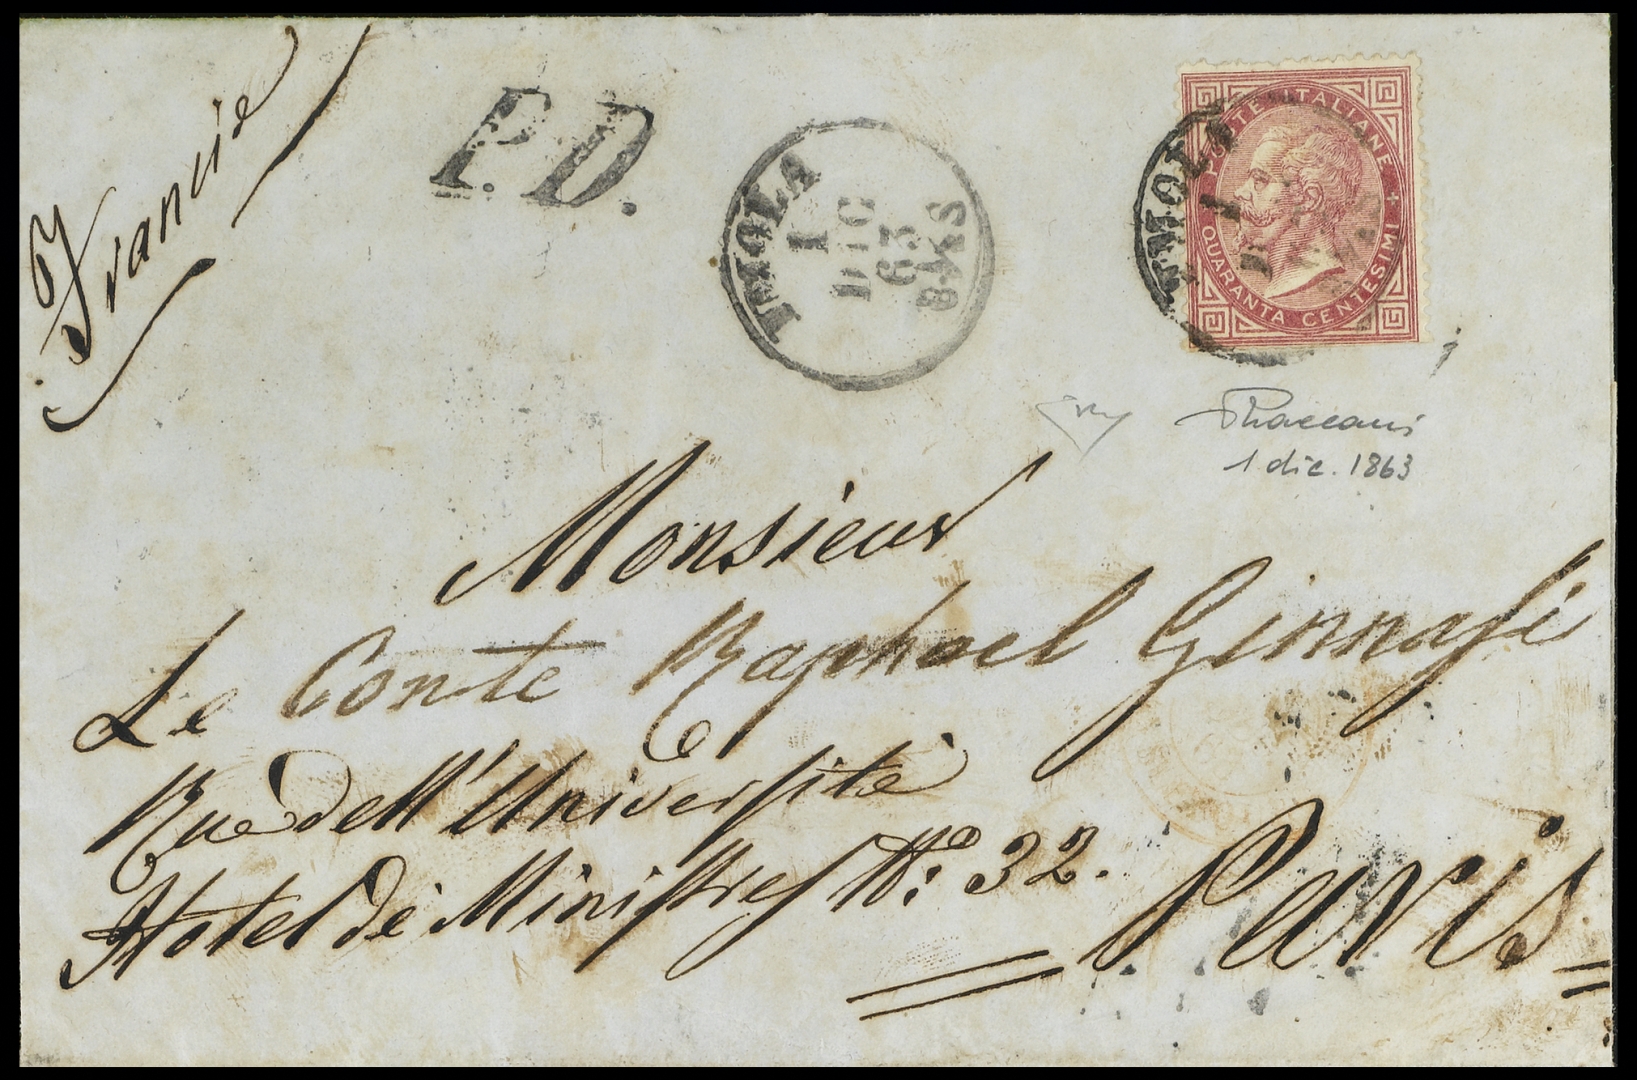 Francia
P.D.
IMOLA
1
DIC
63
8 S
POSTE ITALIANE
QUARANTA CENTESIMI
IMOLA
1
1 dic. 1863
Monsieur
Le Conte Raphael Ginnasi
Rue dell'Université
Hotel de Ministres N.o 32.
Paris